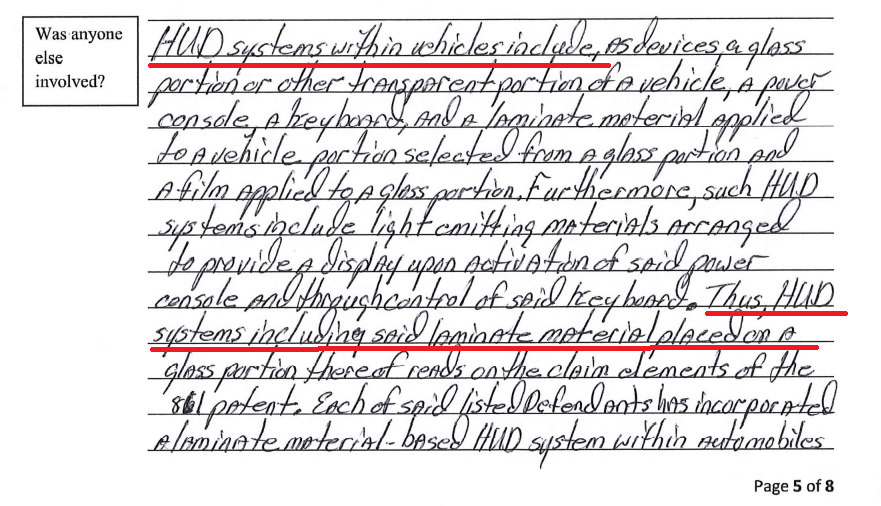 Was anyone
else
involved?
HUD systems within vehicles include, as devices, a glass
portion or other transparent portion of a vehicle, a power
console, a keyboard, and a laminate material applied
to a vehicle portion selected from a glass portion and
a film applied to a glass portion. Furthermore, such HUD
systems include light emitting materials arranged
to provide a display upon activation of said power
console and through control of said keyboard. Thus, HUD
systems including said laminate material placed on a
glass portion thereof reads on the claim elements of the
861 patent. Each of said listed Defendants has incorporated
a laminate material-based HUD system within automobiles
Page 5 of 8